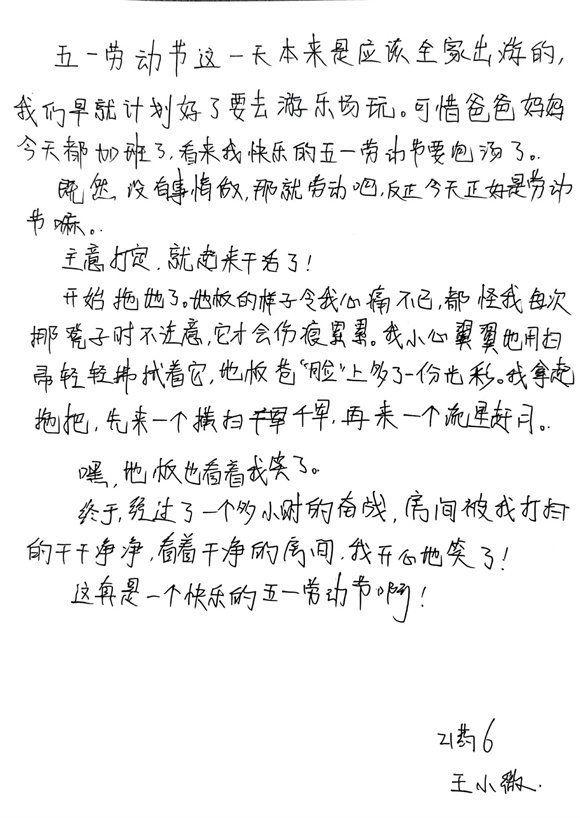 五一劳动节这一天本来是应该全家出游的，
我们早就计划好了要去游乐场玩。可惜爸爸妈妈
今天都加班了，看来我快乐的五一劳动节要泡汤了。
既然没有事情做，那就劳动吧，反正今天正好是劳动
节嘛。
主意打定，就起来干活了！
开始拖地了。地板的样子令我心痛不已，都怪我每次
挪凳子时不注意，它才会伤痕累累。我小心翼翼地用扫
帚轻轻拂拭着它，地板爸“脸”上多了一份光彩。我拿起
拖把，先来一个横扫千军，再来一个流星赶月。
嘿，地板也看着我笑了。
终于，经过了一个多小时的奋战，房间被我打扫
的干干净净，看着干净的房间，我开心地笑了！
这真是一个快乐的五一劳动节啊！
21药6
王小微.